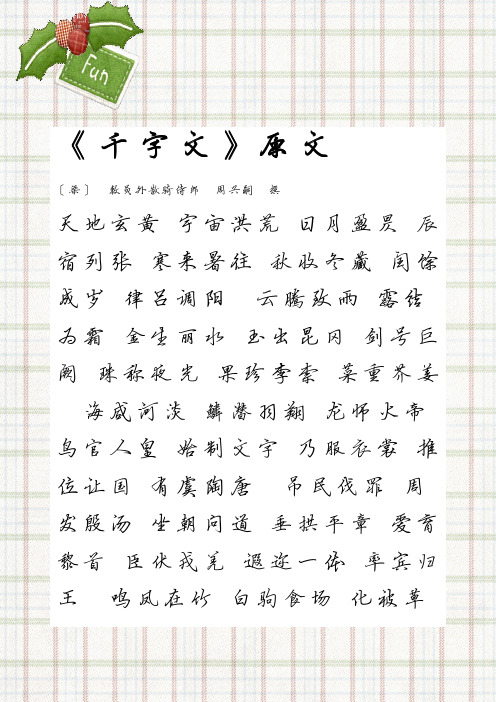 Fun
《千字文》原文
［梁］ 敕员外散骑侍郎 周兴嗣 撰
天地玄黄 宇宙洪荒 日月盈昃 辰
宿列张 寒来暑往 秋收冬藏 闰馀
成岁 律吕调阳 云腾致雨 露结
为霜 金生丽水 玉出昆冈 剑号巨
阙 珠称夜光 果珍李柰 菜重芥姜
海咸河淡 鳞潜羽翔 龙师火帝
鸟官人皇 始制文字 乃服衣裳 推
位让国 有虞陶唐 吊民伐罪 周
发殷汤 坐朝问道 垂拱平章 爱育
黎首 臣伏戎羌 遐迩一体 率宾归
王 鸣凤在竹 白驹食场 化被草